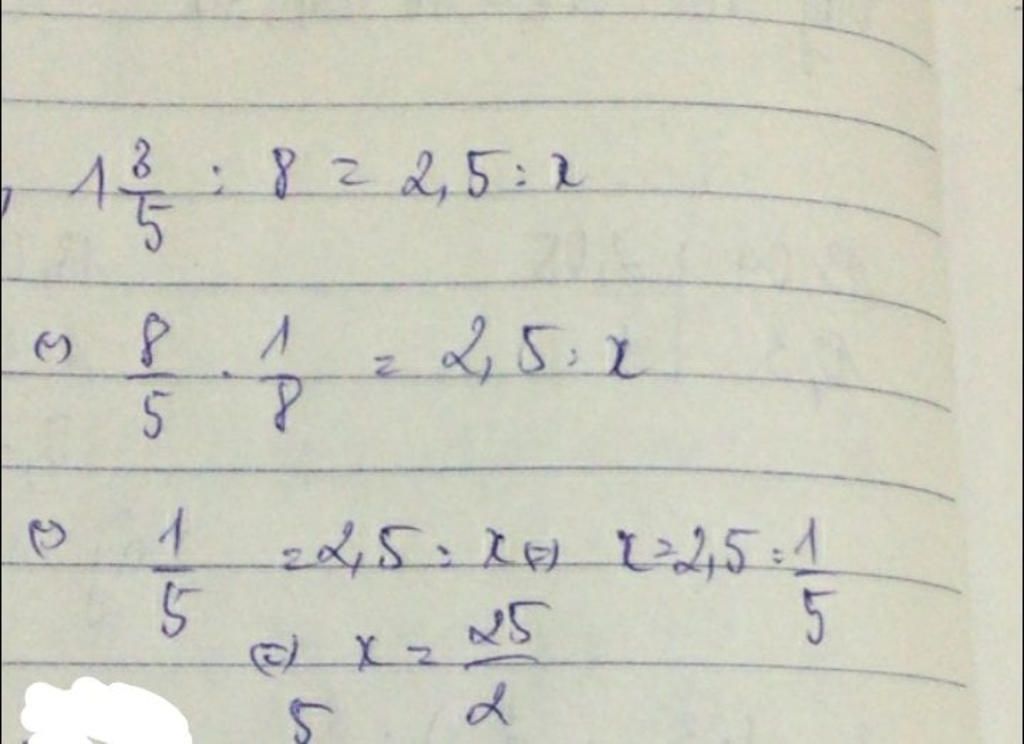 , 1 3/5 : 8 = 2,5 : x
(=) 8/5 . 1/8 = 2,5 : x
(=) 1/5 = 2,5 : x (=) x = 2,5 : 1/5
(=) x = 25/2
5